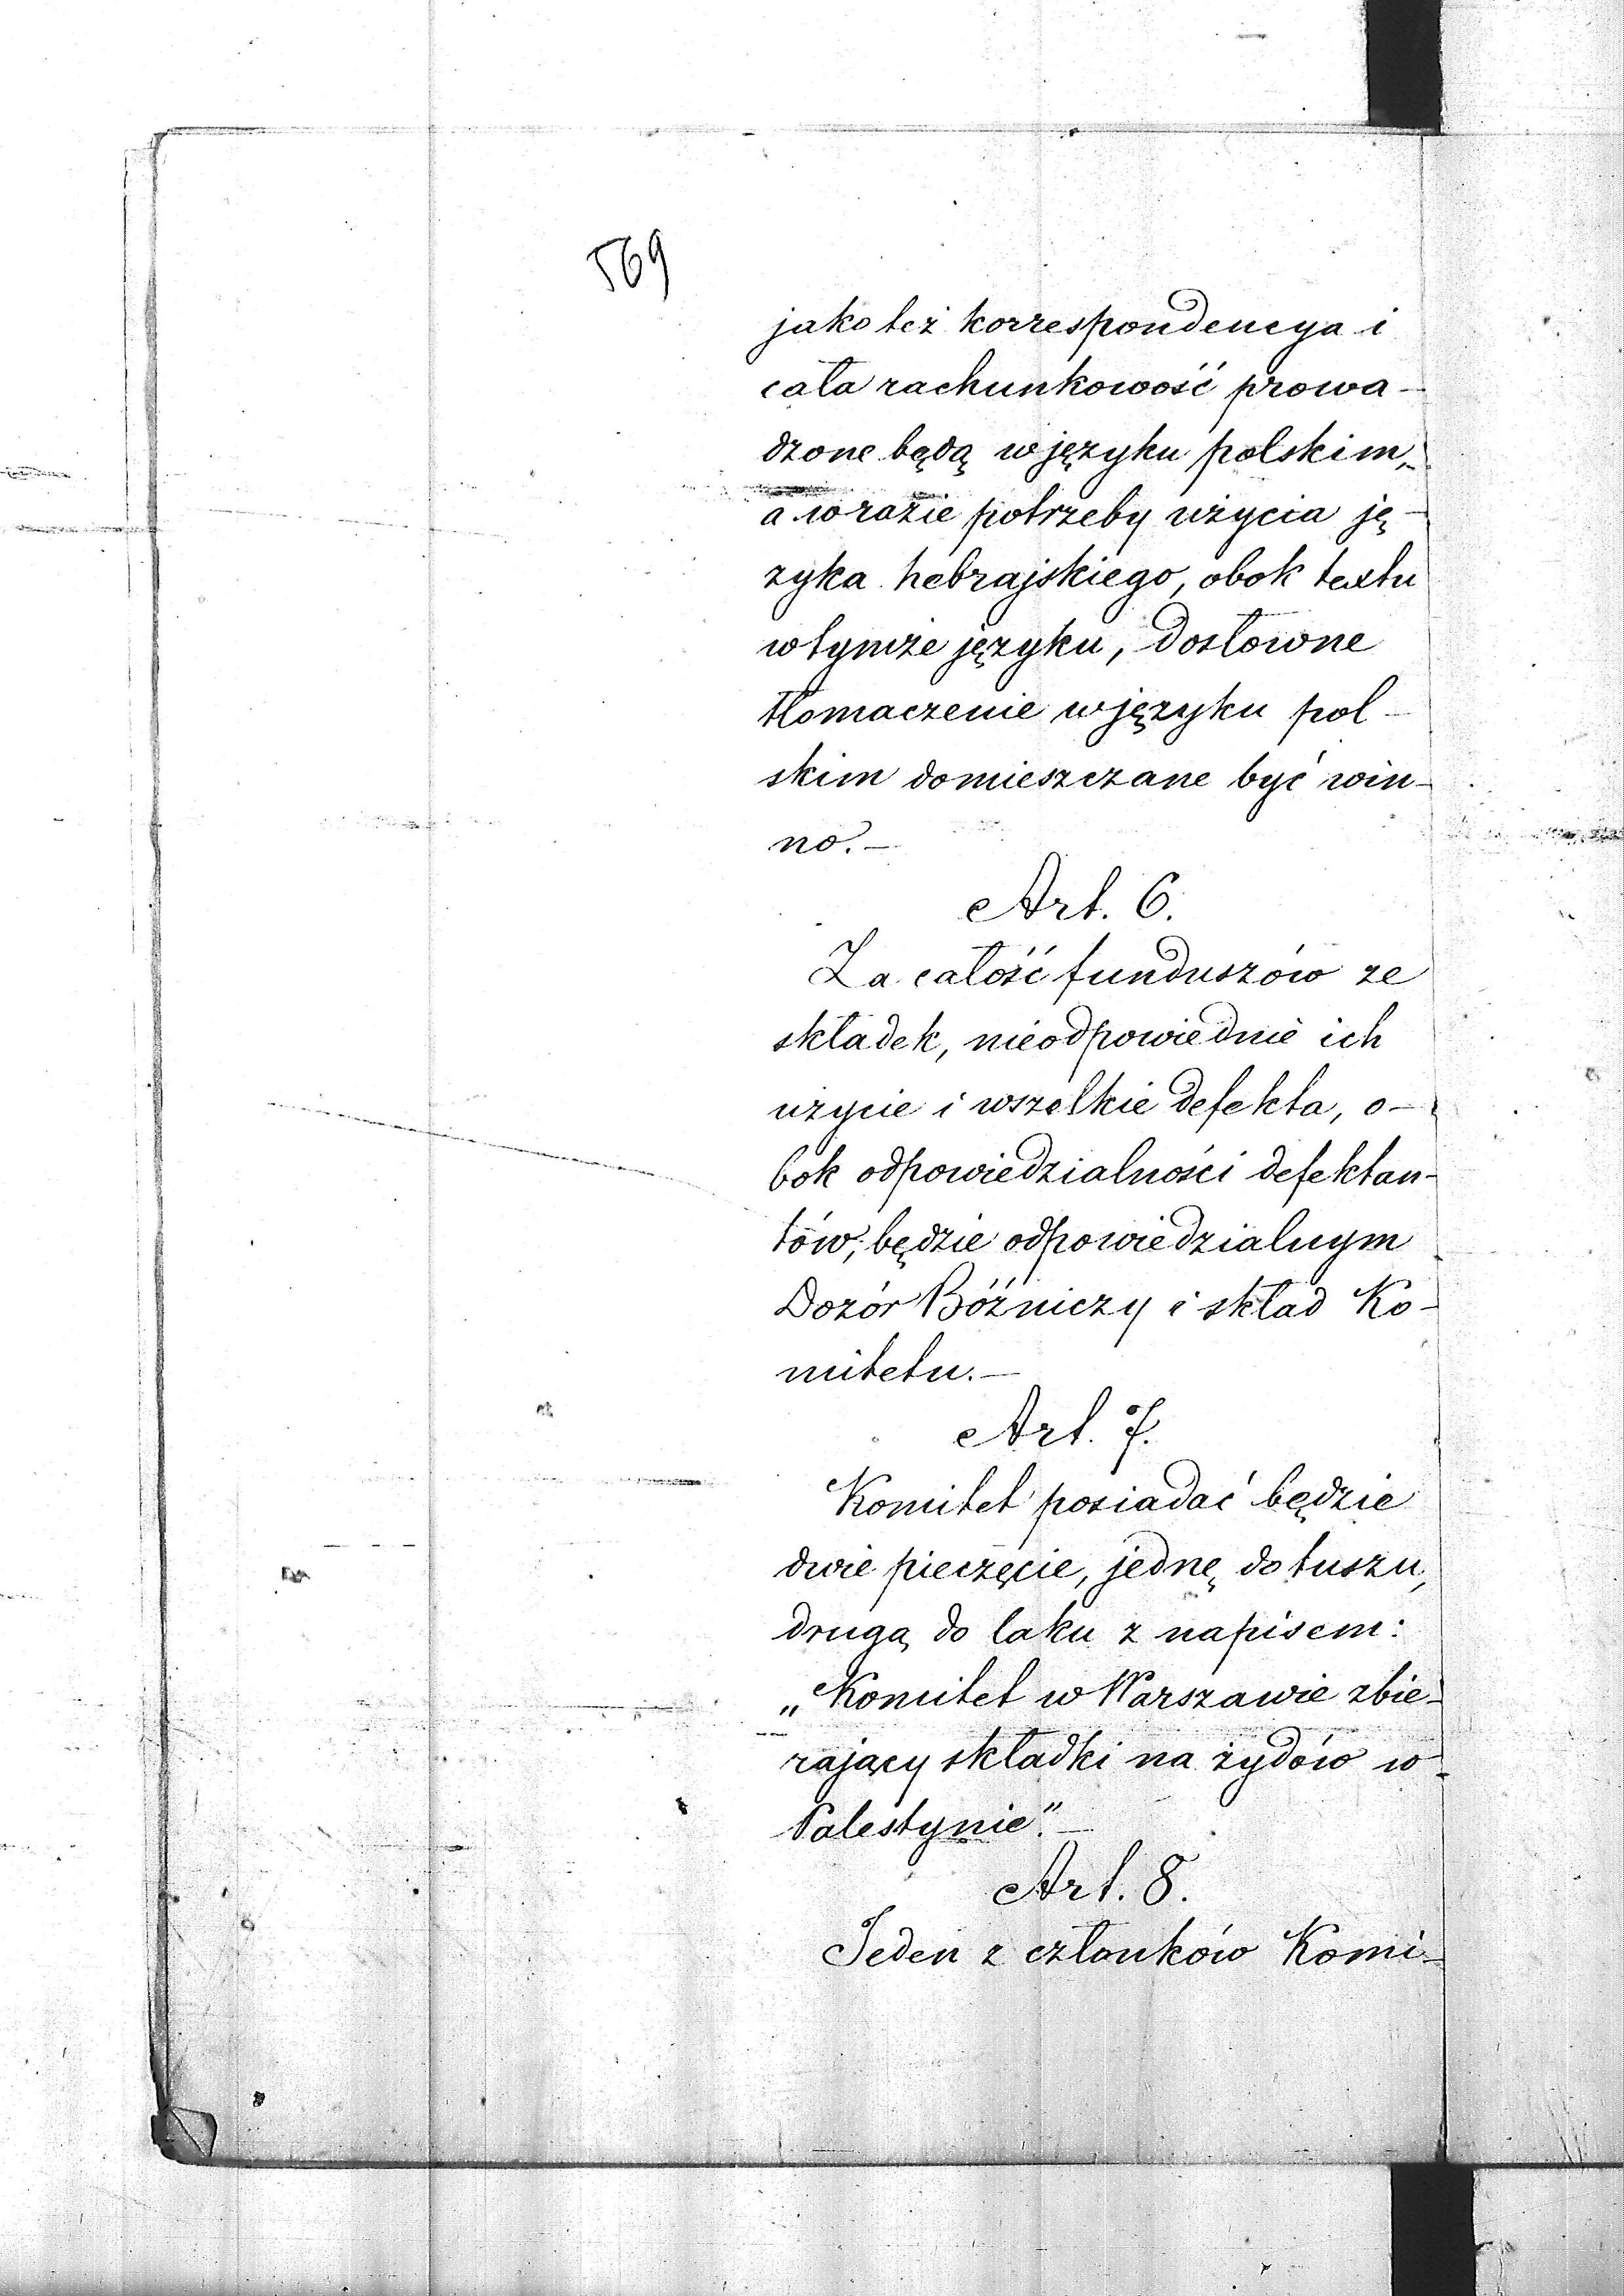 569
jako też korrespondencya i
cała rachunkowość prowa-
dzone będą w języku polskim,
a w razie potrzeby użycia ję-
zyka hebrajskiego, obok textu
w tymże języku, dosłowne
tłomaczenie w języku pol-
skim domieszczane być win-
no.—
Art. 6.
Za całość funduszów ze
składek, nieodpowiednie ich
użycie i wszelkie defekta, o-
bok odpowiedzialności defektan-
tów, będzie odpowiedzialnym
Dozór Bóżniczy i skład Ko-
mitetu.—
Art. 7.
Komitet posiadać będzie
dwie pieczęcie, jednę do tuszu,
drugą do laku z napisem:
„Komitet w Warszawie zbie-
rający składki na żydów w
Palestynie".—
Art. 8.
Jeden z członków Komi-